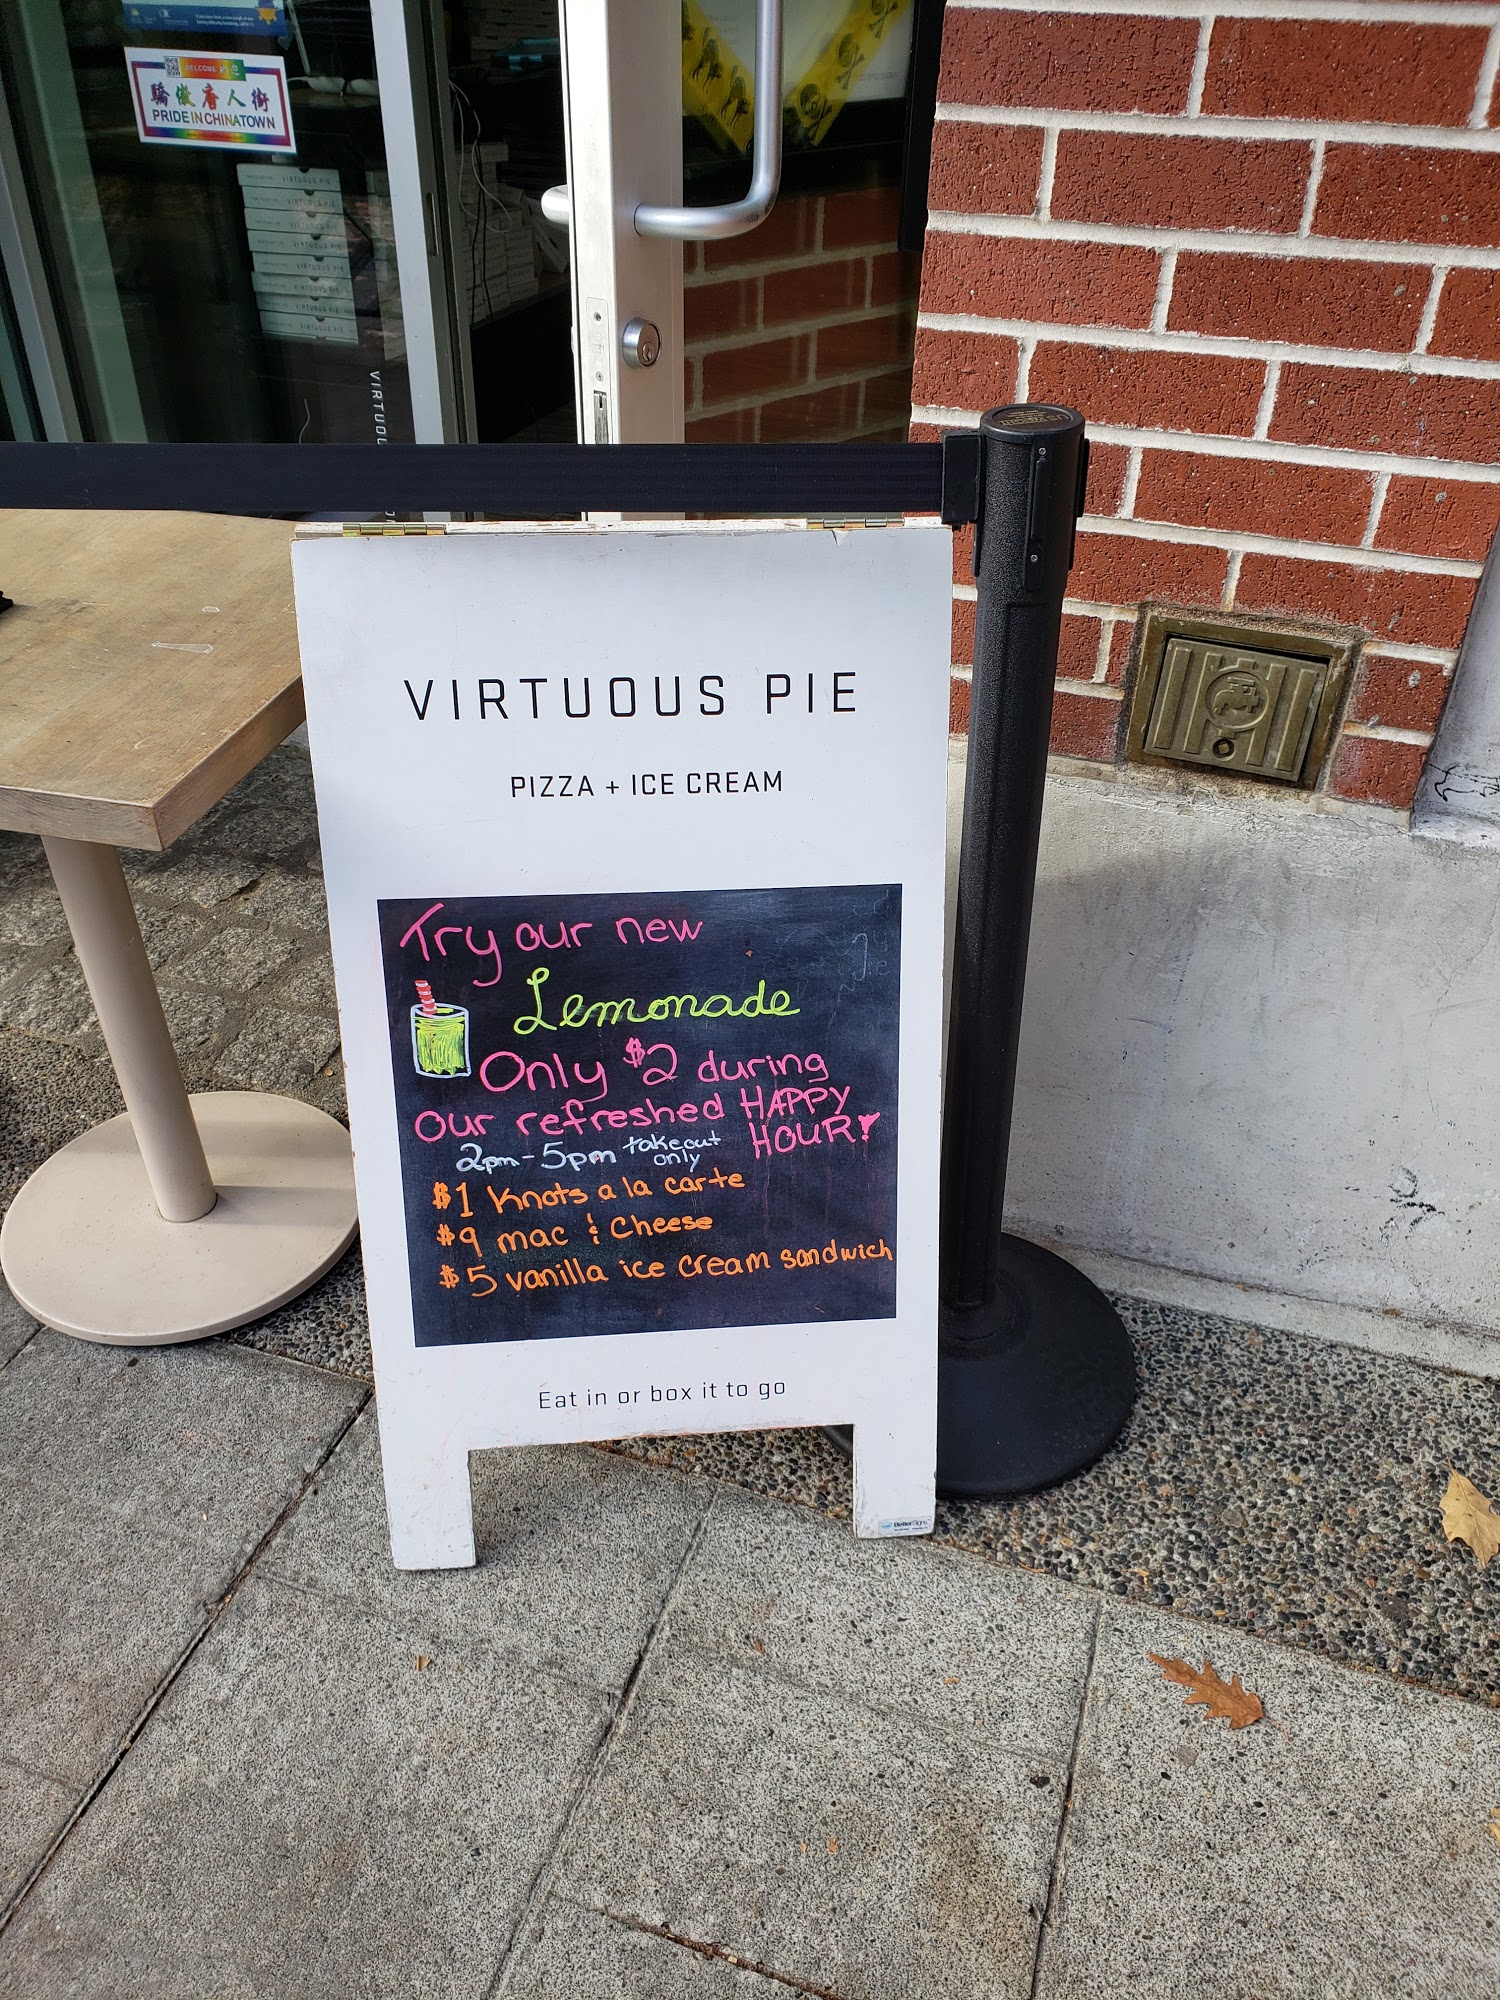 WELCOME
驕傲唐人街
PRIDE IN CHINATOWN
VIRTUOUS PIE
VIRTUOUS PIE
VIRTUOUS PIE
VIRTUOUS PIE
VIRTUOUS PIE
VIRTUOUS PIE
PIZZA + ICE CREAM
Try our new
Lemonade
Only $2 during
our refreshed HAPPY
HOUR!
2pm - 5pm take out
only
$1 Knots a la carte
$9 mac & Cheese
$5 vanilla ice cream sandwich
Eat in or box it to go
BetterSigns